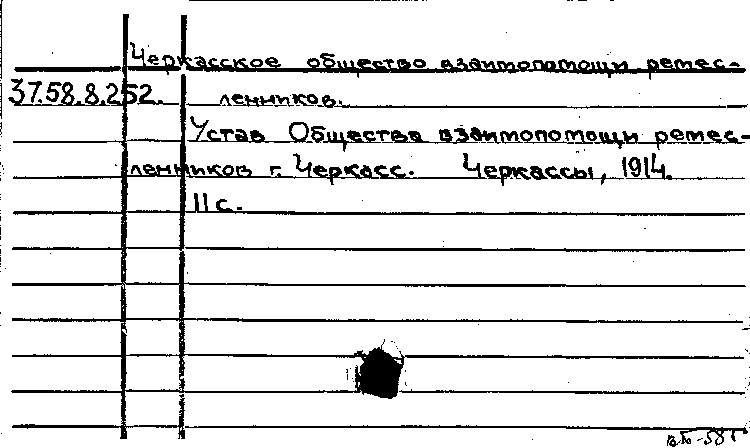 Черкасское общество взаимопомощи ремес-
37.58.8.252. ленников.
Устав Общества взаимопомощи ремес-
ленников г. Черкасс. Черкассы, 1914.
11 с.